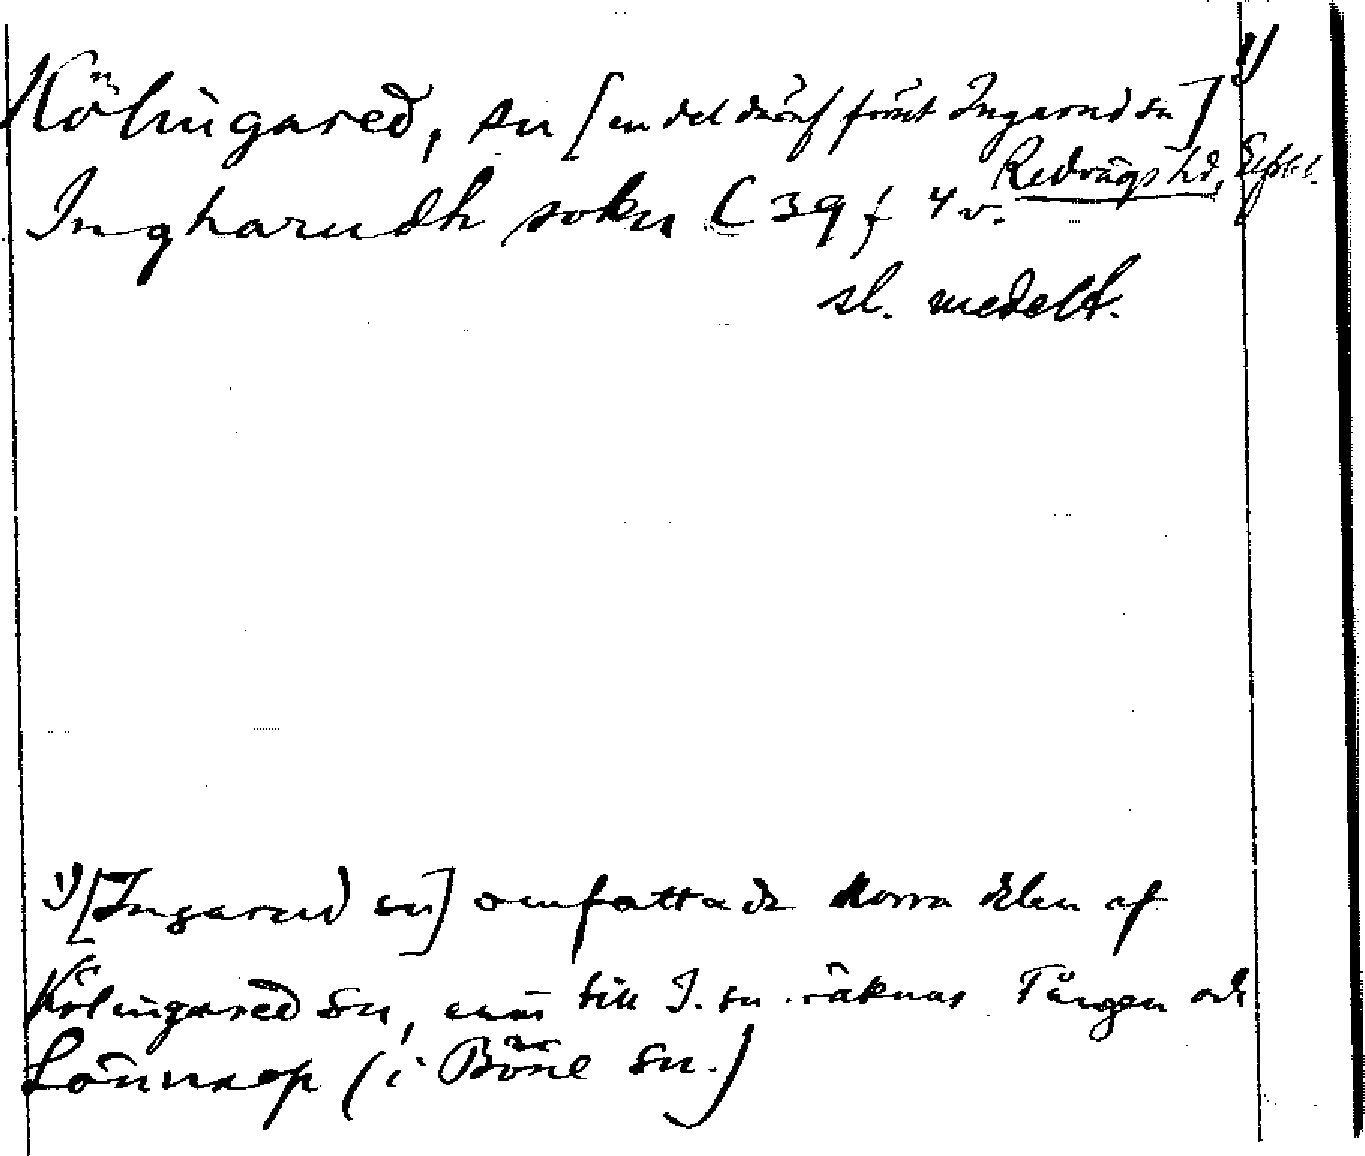 Kölingared, sn [en del däraf förut Ingarud sn] 1)
Redvägs hd, Elfsb. l.
Ingharudh sokn C 39 f 4 v.
sl. medelt.
1) [Ingarud sn] omfattade norra delen af
Kölingared sn, till I. sn räknas Tången och
Lönnarp (i Böne sn.)